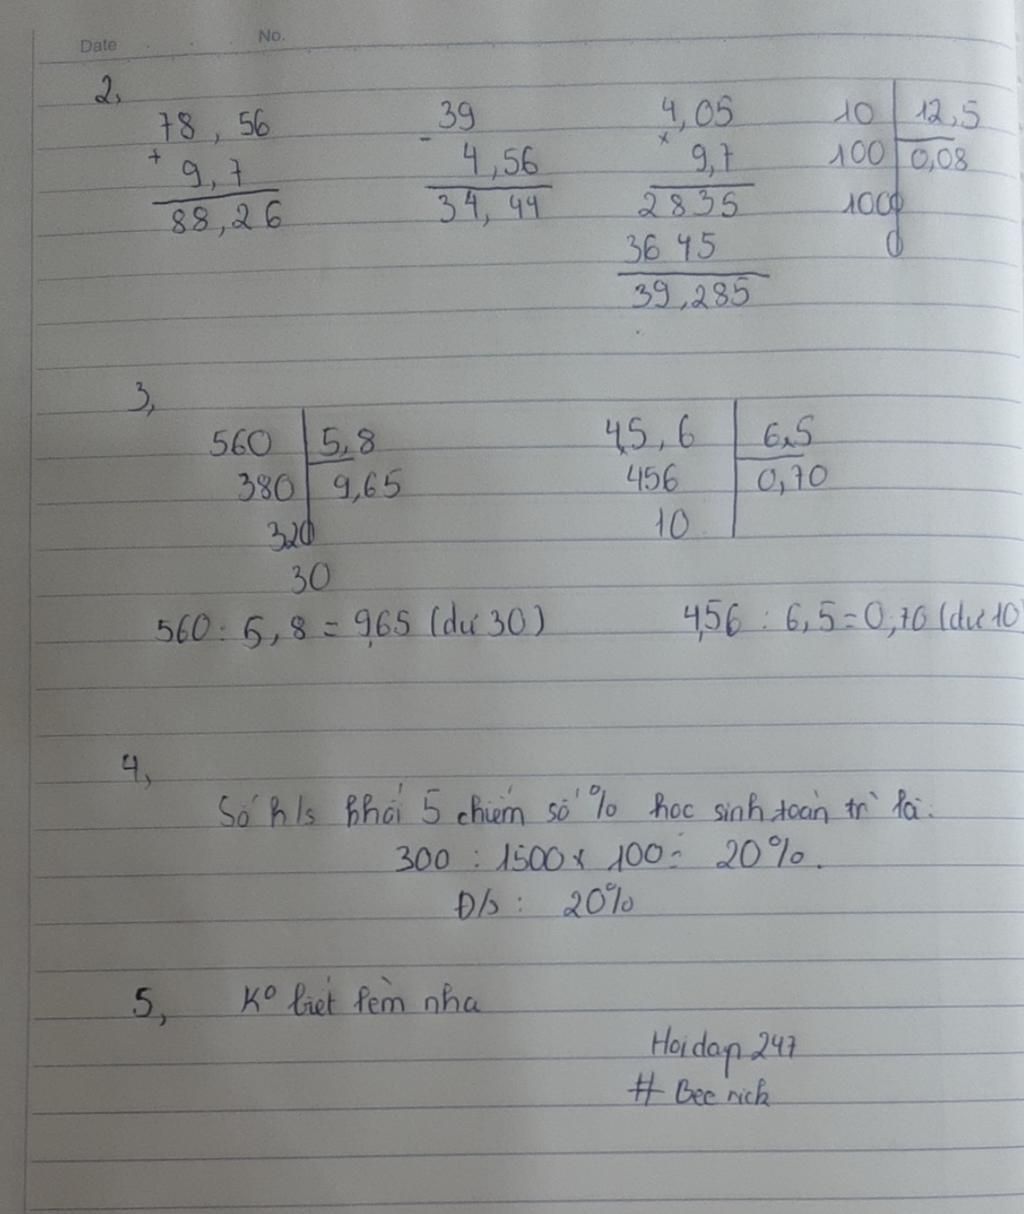 Date No.
2,
78,56
+
9,7
88,26
39
-
4,56
34,44
4,05
×
9,7
2835
3645
39,285
10 12,5
100 0,08
1000
0
3,
560 5,8
380 9,65
320
30
45,6 6,5
456 0,70
10
560 : 5,8 = 9,65 (dư 30)
4,56 : 6,5 = 0,70 (dư 10
4,
Số h/s khối 5 chiếm số % học sinh toàn tr` là:
300 : 1500 × 100 = 20%.
Đ/s : 20%
5, Kº biết lèm nha
Hoidap 247
# Bee rick